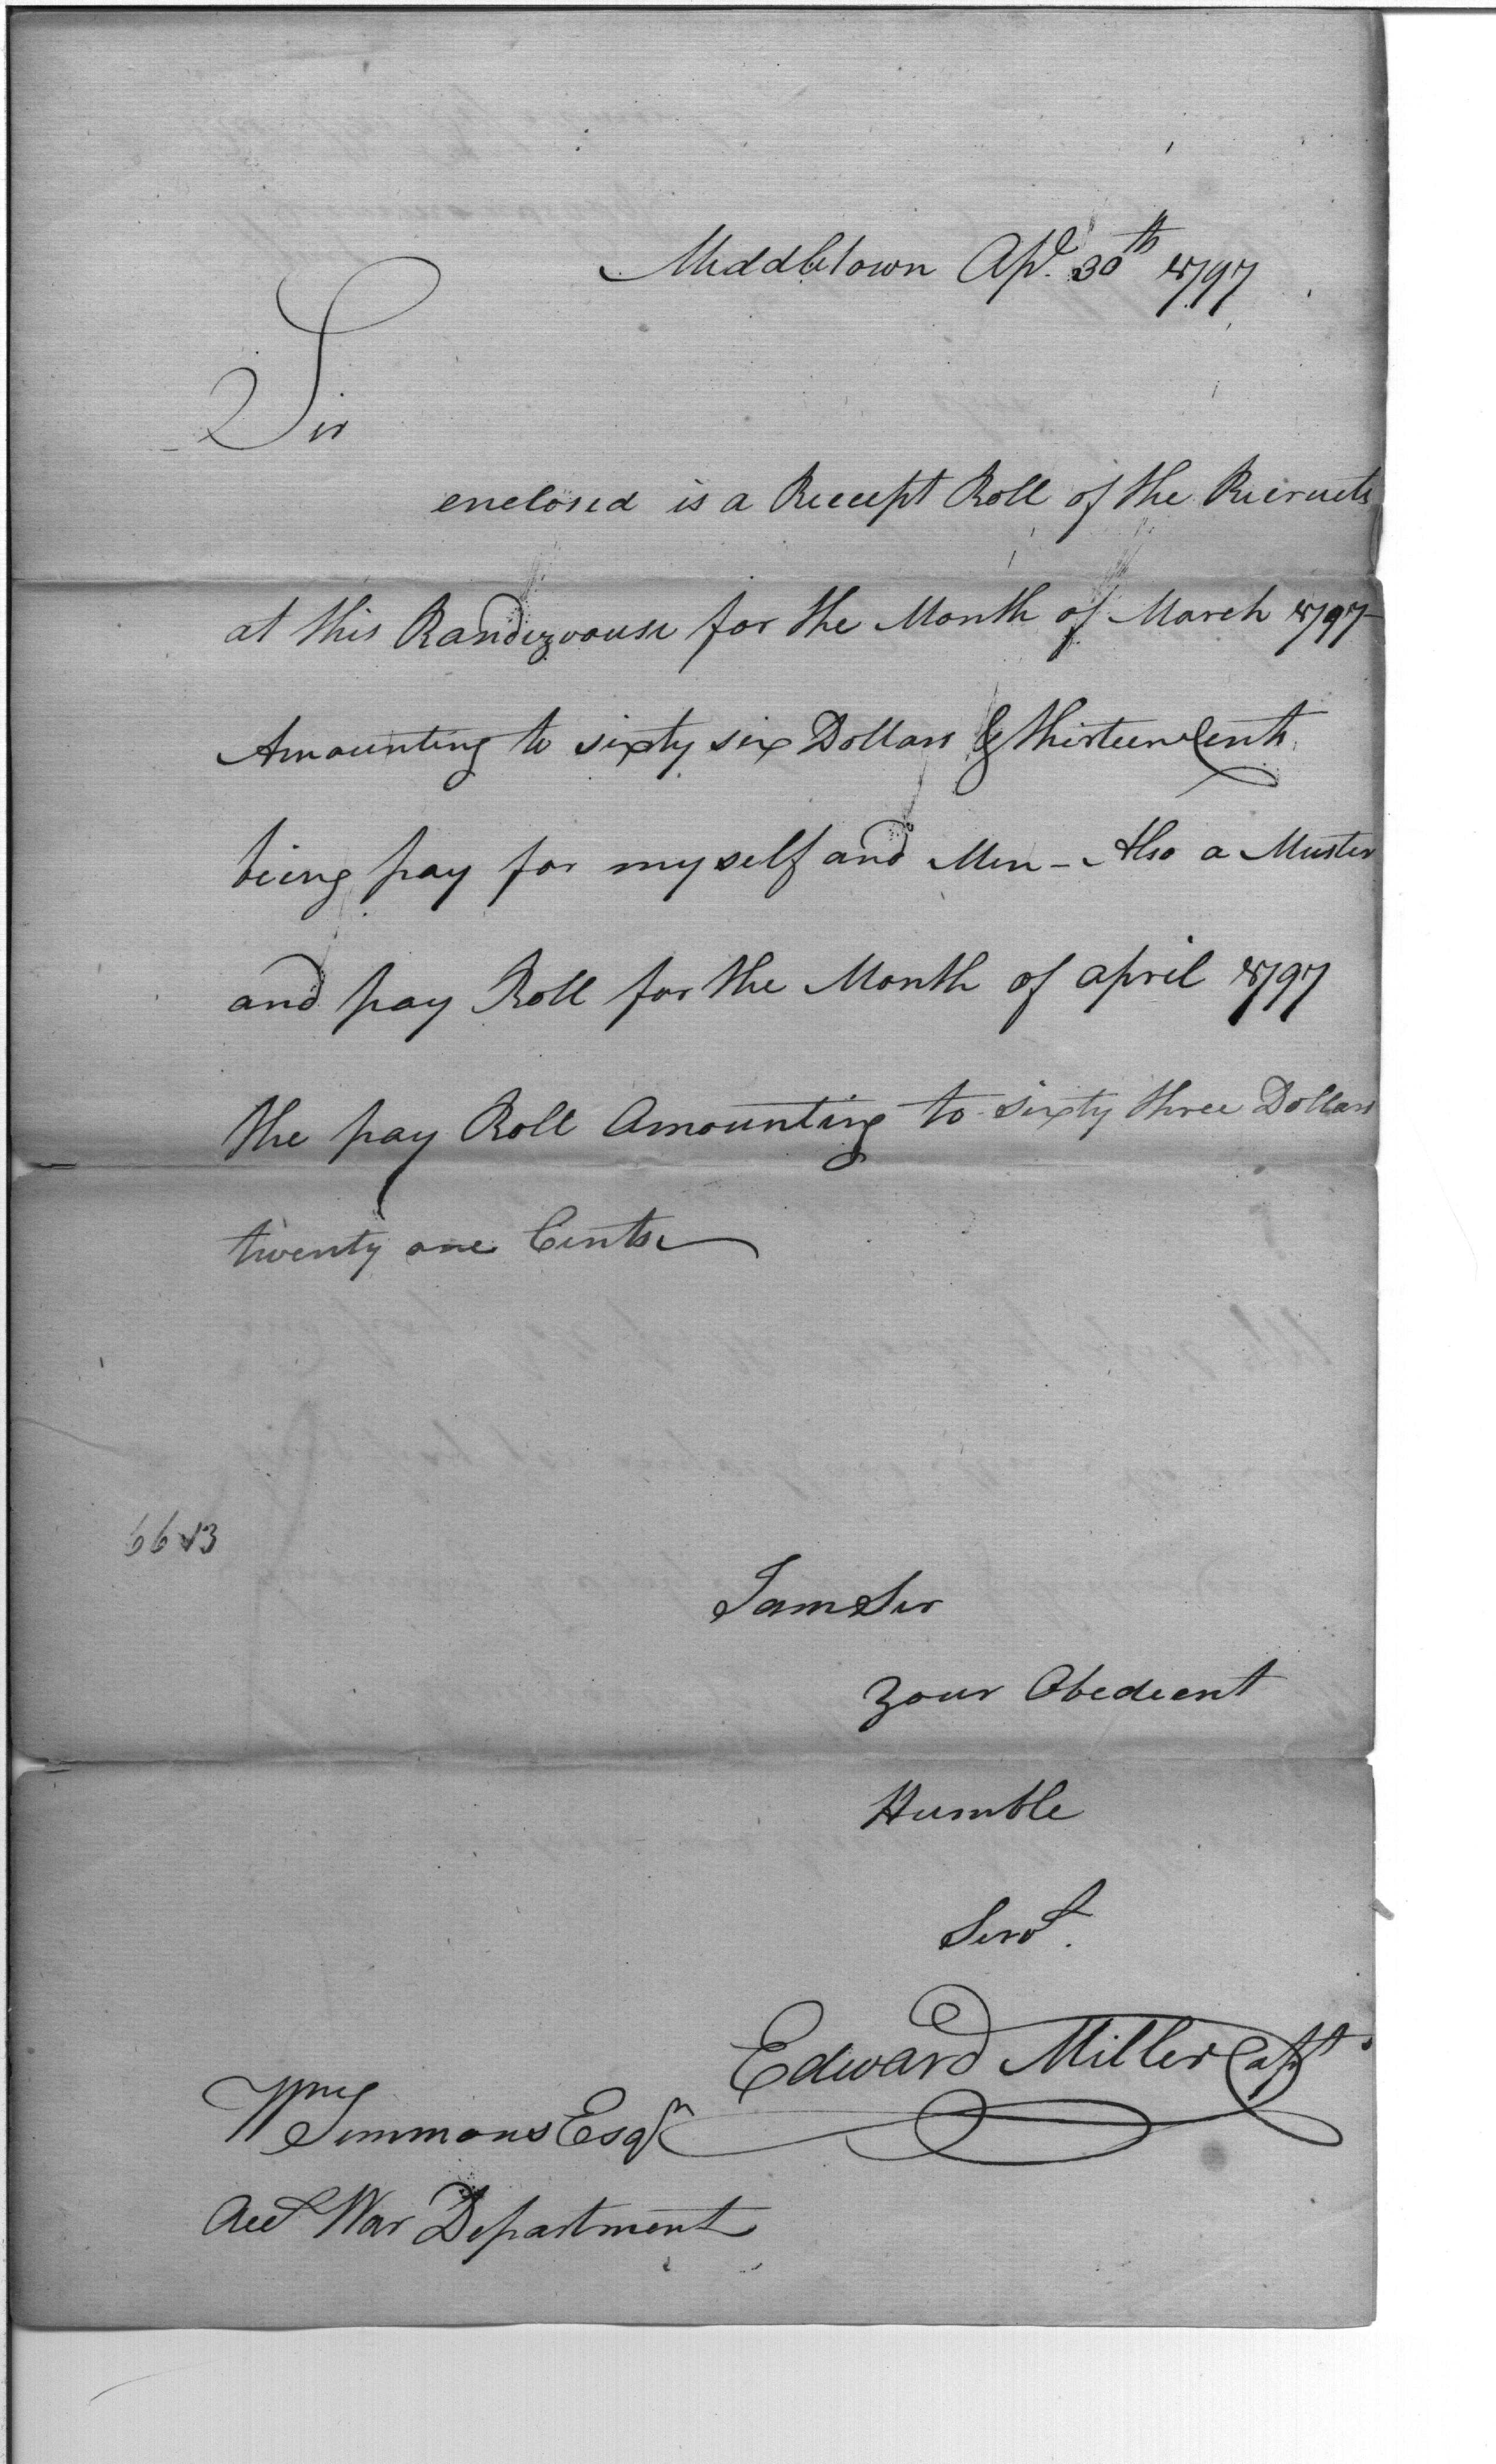 Middletown Apl. 30th 1797
Sir
enclosed is a Receept Roll of the Recruets
at this Randezvouse for the Month of March 1797
Amounting to sixty six Dollars & thirteen Cents
being pay for myself and Men - Also a Muster
and pay Roll for the Month of april 1797
the pay Roll Amounting to sixty three Dollars
twenty one Cents
66 13
I am Sir
your Obedient
Humble
Servt.
Edward Miller Capt
Wm Simmons Esqr
Acct War Department